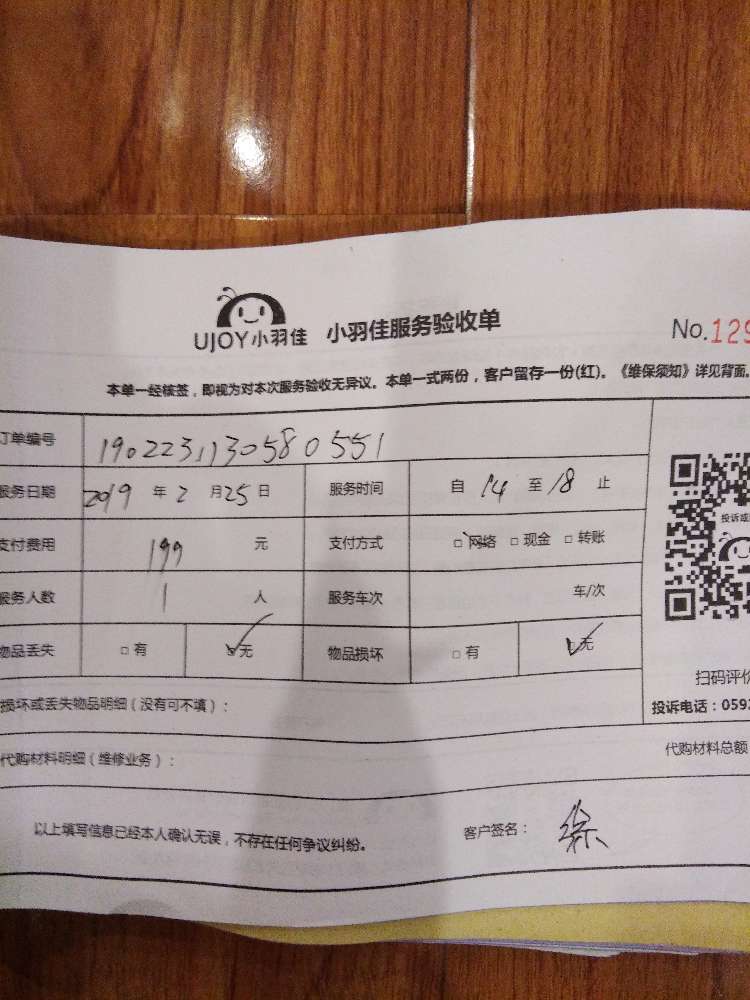 UJOY小羽佳 小羽佳服务验收单
No.129
本单一经核签，即视为对本次服务验收无异议。本单一式两份，客户留存一份(红)。《维保须知》详见背面。
订单编号 1902231130580551
服务日期 2019 年 2 月 25 日 服务时间 自 14 至 18 止
支付费用 199 元 支付方式 □网络 □现金 □转账
服务人数 1 人 服务车次 车/次
物品丢失 □有 □无 物品损坏 □有 □无
投诉或
扫码评价
投诉电话：059
损坏或丢失物品明细（没有可不填）：
代购材料明细（维修业务）： 代购材料总额
以上填写信息已经本人确认无误，不存在任何争议纠纷。 客户签名：